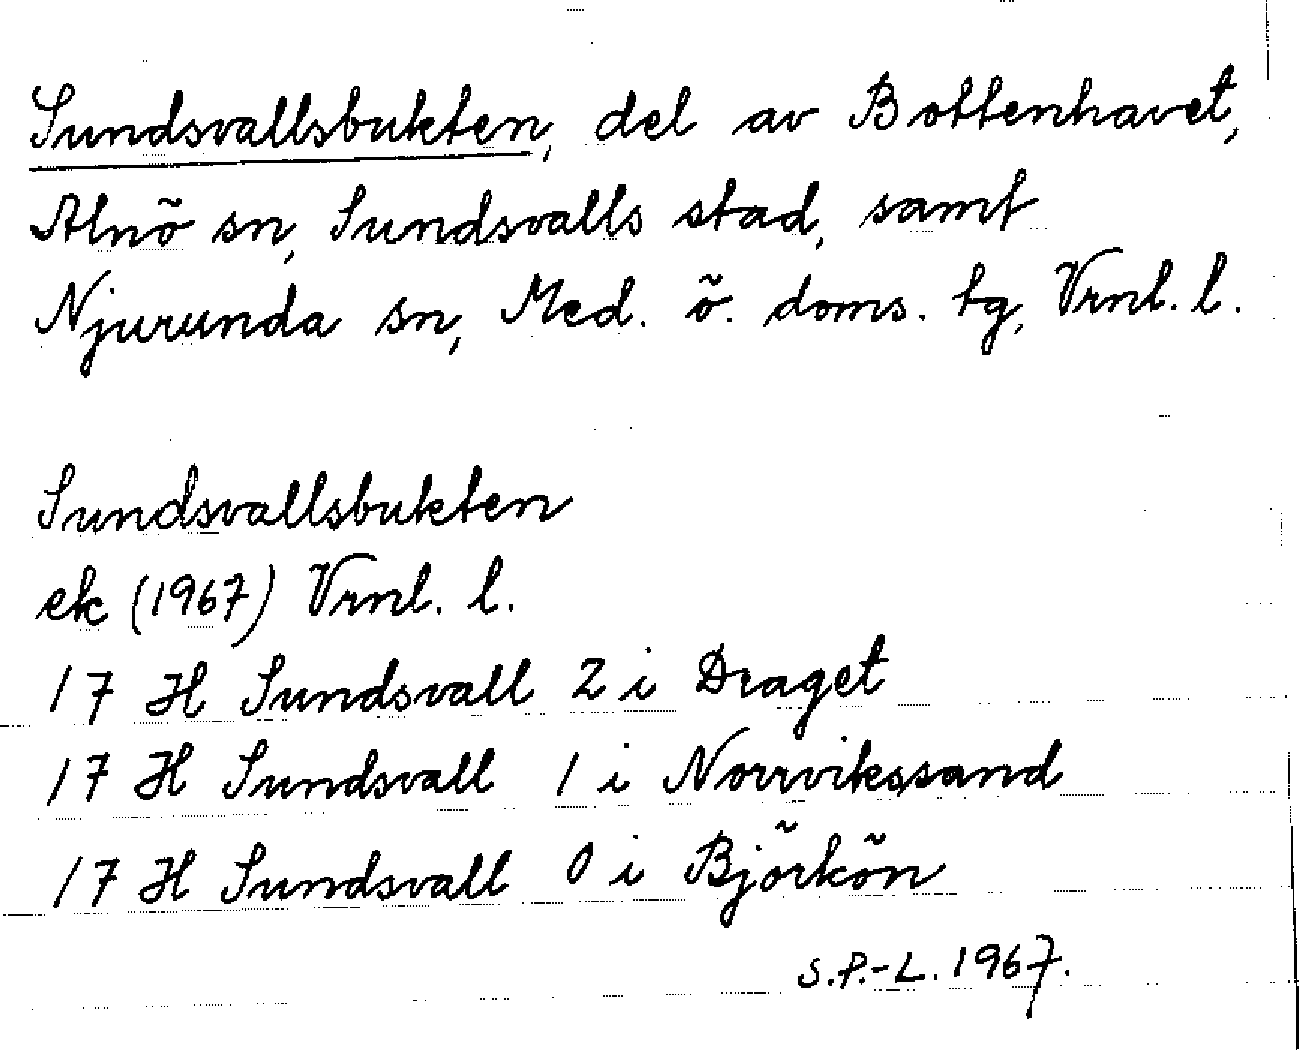 Sundsvallsbukten, del av Bottenhavet,
Alnö sn, Sundsvalls stad, samt
Njurunda sn, Med. ö. doms. tg, Vrnl. l.
Sundsvallsbukten
ek (1967) Vrnl. l.
17 H Sundsvall 2 i Draget
17 H Sundsvall 1 i Norrvikssand
17 H Sundsvall 0 i Björkön
S.P.-L. 1967.